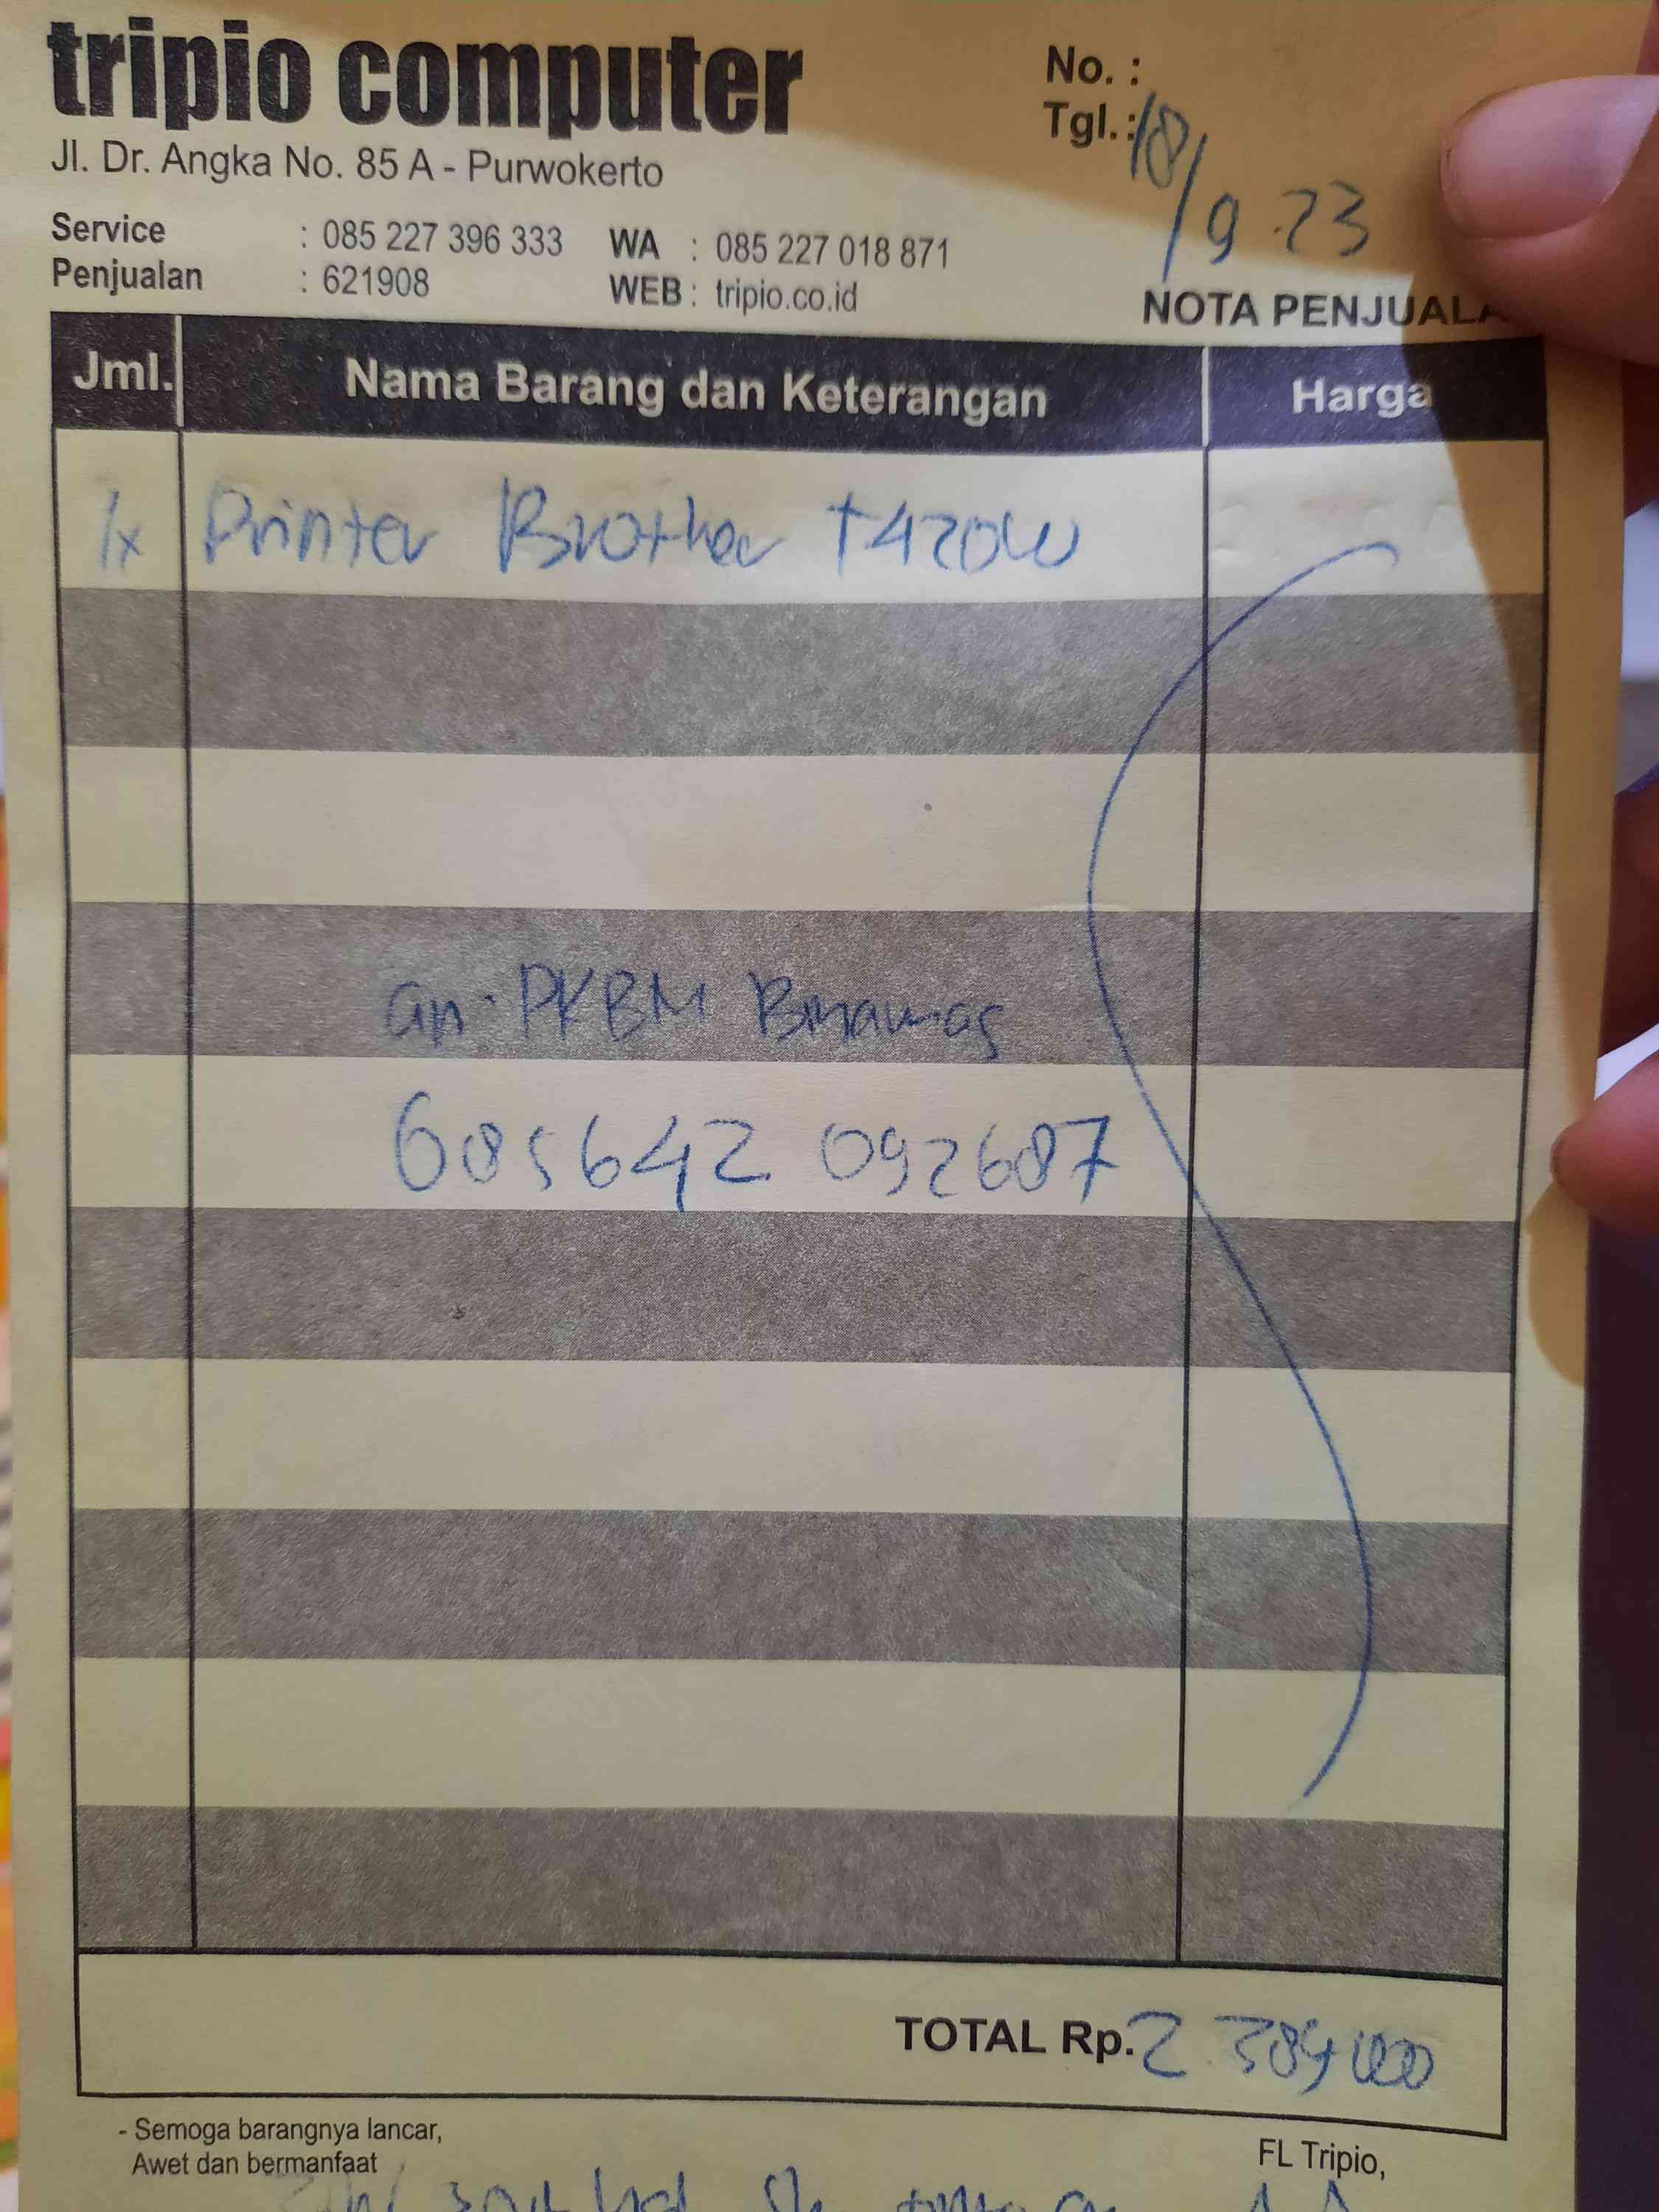 tripio computer
Jl. Dr. Angka No. 85 A - Purwokerto
No. :
Tgl. : 18/9-23
Service : 085 227 396 333 WA : 085 227 018 871
Penjualan : 621908 WEB : tripio.co.id
NOTA PENJUALA
Jml. Nama Barang dan Keterangan Harga
1x Printer Brother T420W
an. PKBM
085642 092687
TOTAL Rp. 2.389.000
- Semoga barangnya lancar,
Awet dan bermanfaat
FL Tripio,